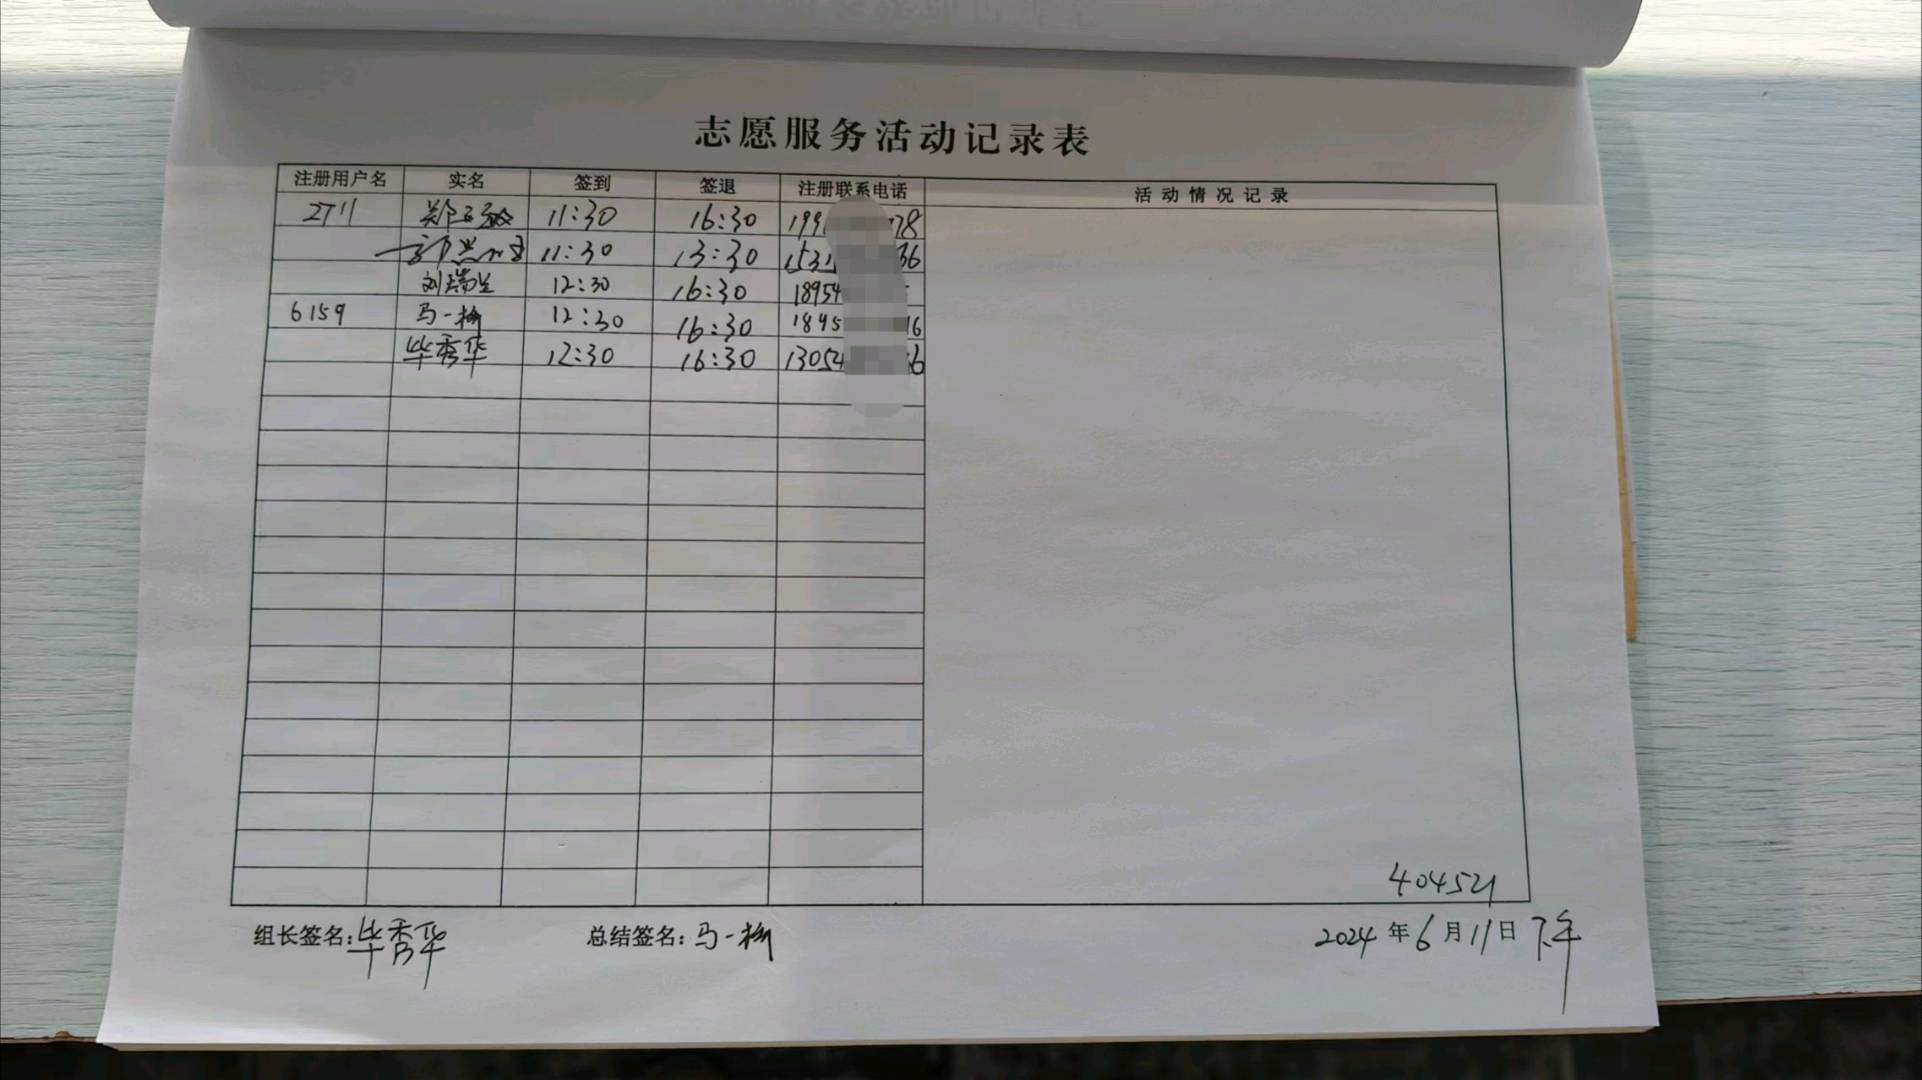 志愿服务活动记录表
注册用户名 实名 签到 签退 注册联系电话 活动情况记录
2711 11:30 16:30 199 78
11:30 13:30 1531 36
刘瑞兰 12:30 16:30 18954
6159 马一楠 12:30 16:30 1895 16
毕秀华 12:30 16:30 13054 6
404521
组长签名:毕秀华 总结签名:马一楠 2024年6月11日下午